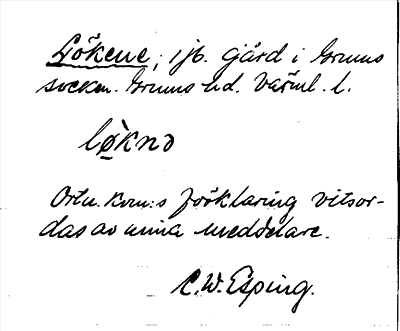 Lökene, i jb. gård i Grums
socken. Grums hd. Värml. l.
lø̀knə
Ortn. kom:s förklaring vitsor-
das av mina meddelare.
C.W. Esping.